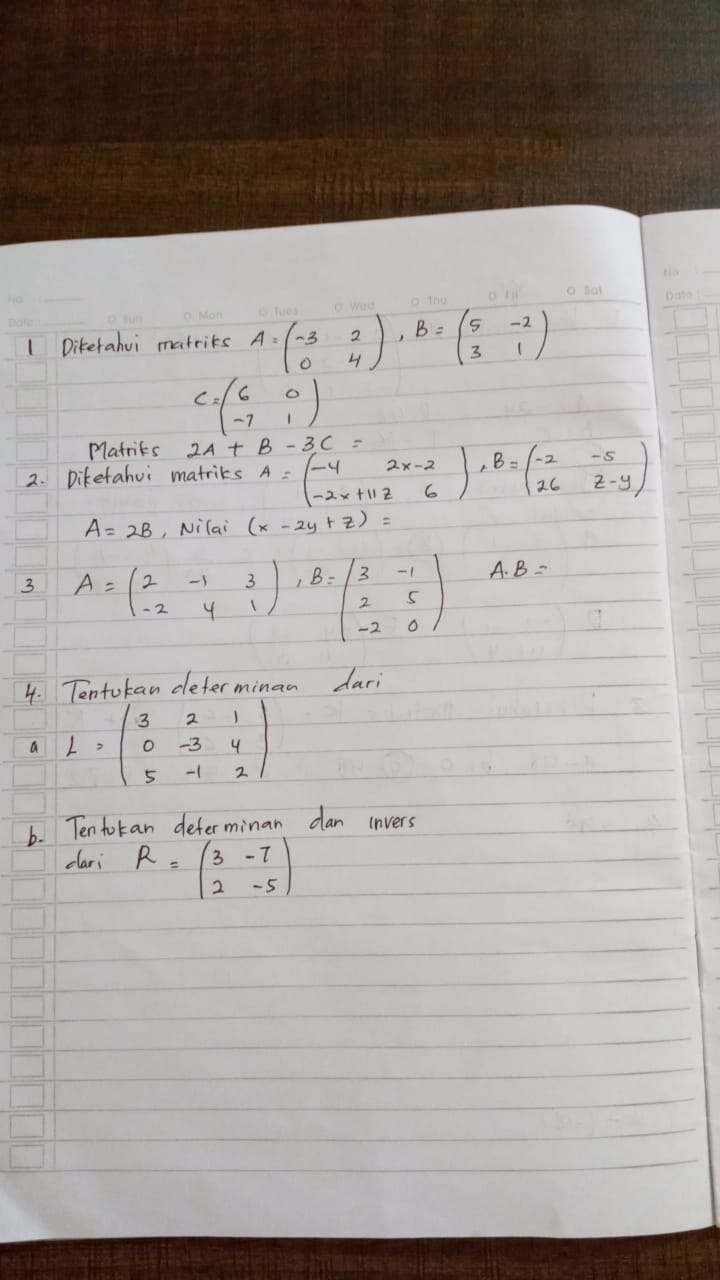 No
Date:
O Sun O Mon O Tues O Wed O Thu O Fri O Sat
No
Date:
1 Diketahui matriks A = (-3 2 , B = (5 -2
0 4) 3 1)
C = (6 0
-7 1)
Matriks 2A + B - 3C =
2. Diketahui matriks A = (-4 2x-2 , B = (-2 -5
-2x+11z 6) 26 z-y)
A = 2B, Nilai (x - 2y + z) =
3 A = (2 -1 3 , B = (3 -1 A.B =
-2 4 1) 2 5
-2 0)
4. Tentukan determinan dari
a L = (3 2 1
0 -3 4
5 -1 2)
b. Tentukan determinan dan invers
dari R = (3 -7
2 -5)